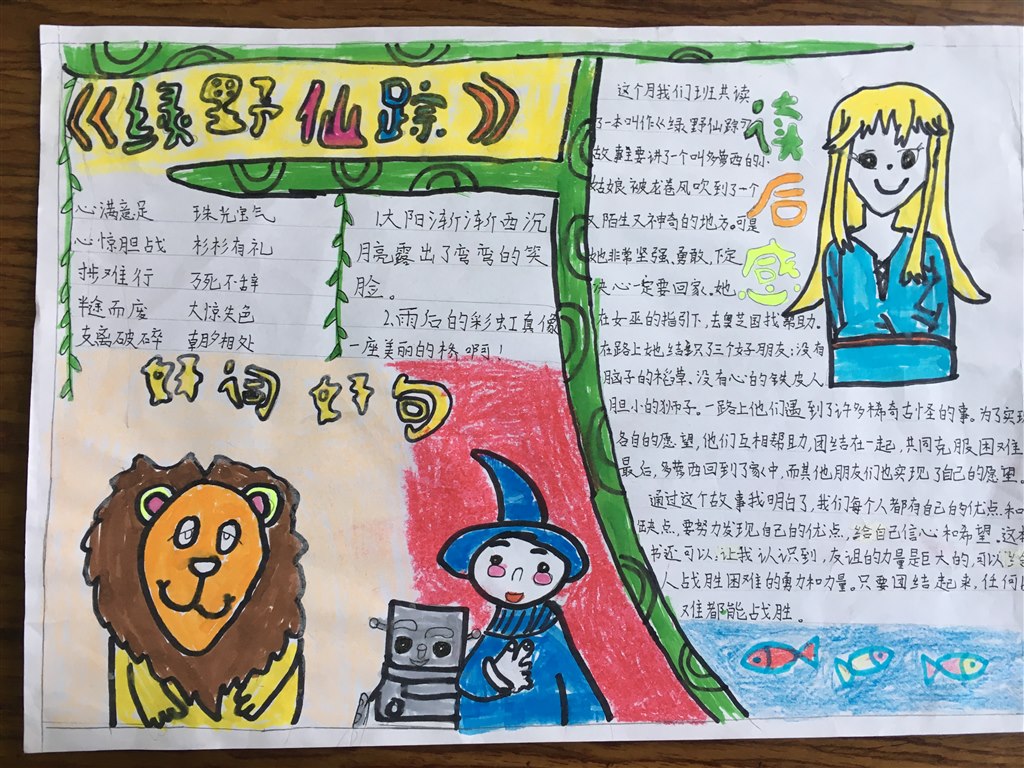 《绿野仙踪》
心满意足 珠光宝气
心惊胆战 彬彬有礼
涉难行 万死不辞
半途而废 大惊失色
支离破碎 朝夕相处
1.太阳渐渐西沉
月亮露出了弯弯的笑
脸。
2.雨后的彩虹真像
一座美丽的桥啊！
好词好句
读后感
这个月我们班共读
了一本叫作《绿野仙踪》
故事里要讲了一个叫多萝西的小
姑娘被龙卷风吹到了一个
又陌生又神奇的地方。可是
她非常坚强、勇敢、下定
决心一定要回家。她
在女巫的指引下，去奥芝国找帮助。
在路上她，结集只了三个好朋友：没有
脑子的稻草、没有心的铁皮人
胆小的狮子。一路上他们遇到了许多稀奇古怪的事。为了实现
各自的愿望，他们互相帮助，团结在一起，共同克服困难
最后，多萝西回到了家中，而其他朋友们也实现了自己的愿望。
通过这个故事我明白了，我们每个人都有自己的优点和
缺点，要努力发现自己的优点，给自己信心和希望。这本
书还可以让我认识到，友谊的力量是巨大的，可以
人战胜困难的勇力和力量。只要团结起来，任何
难都能战胜。